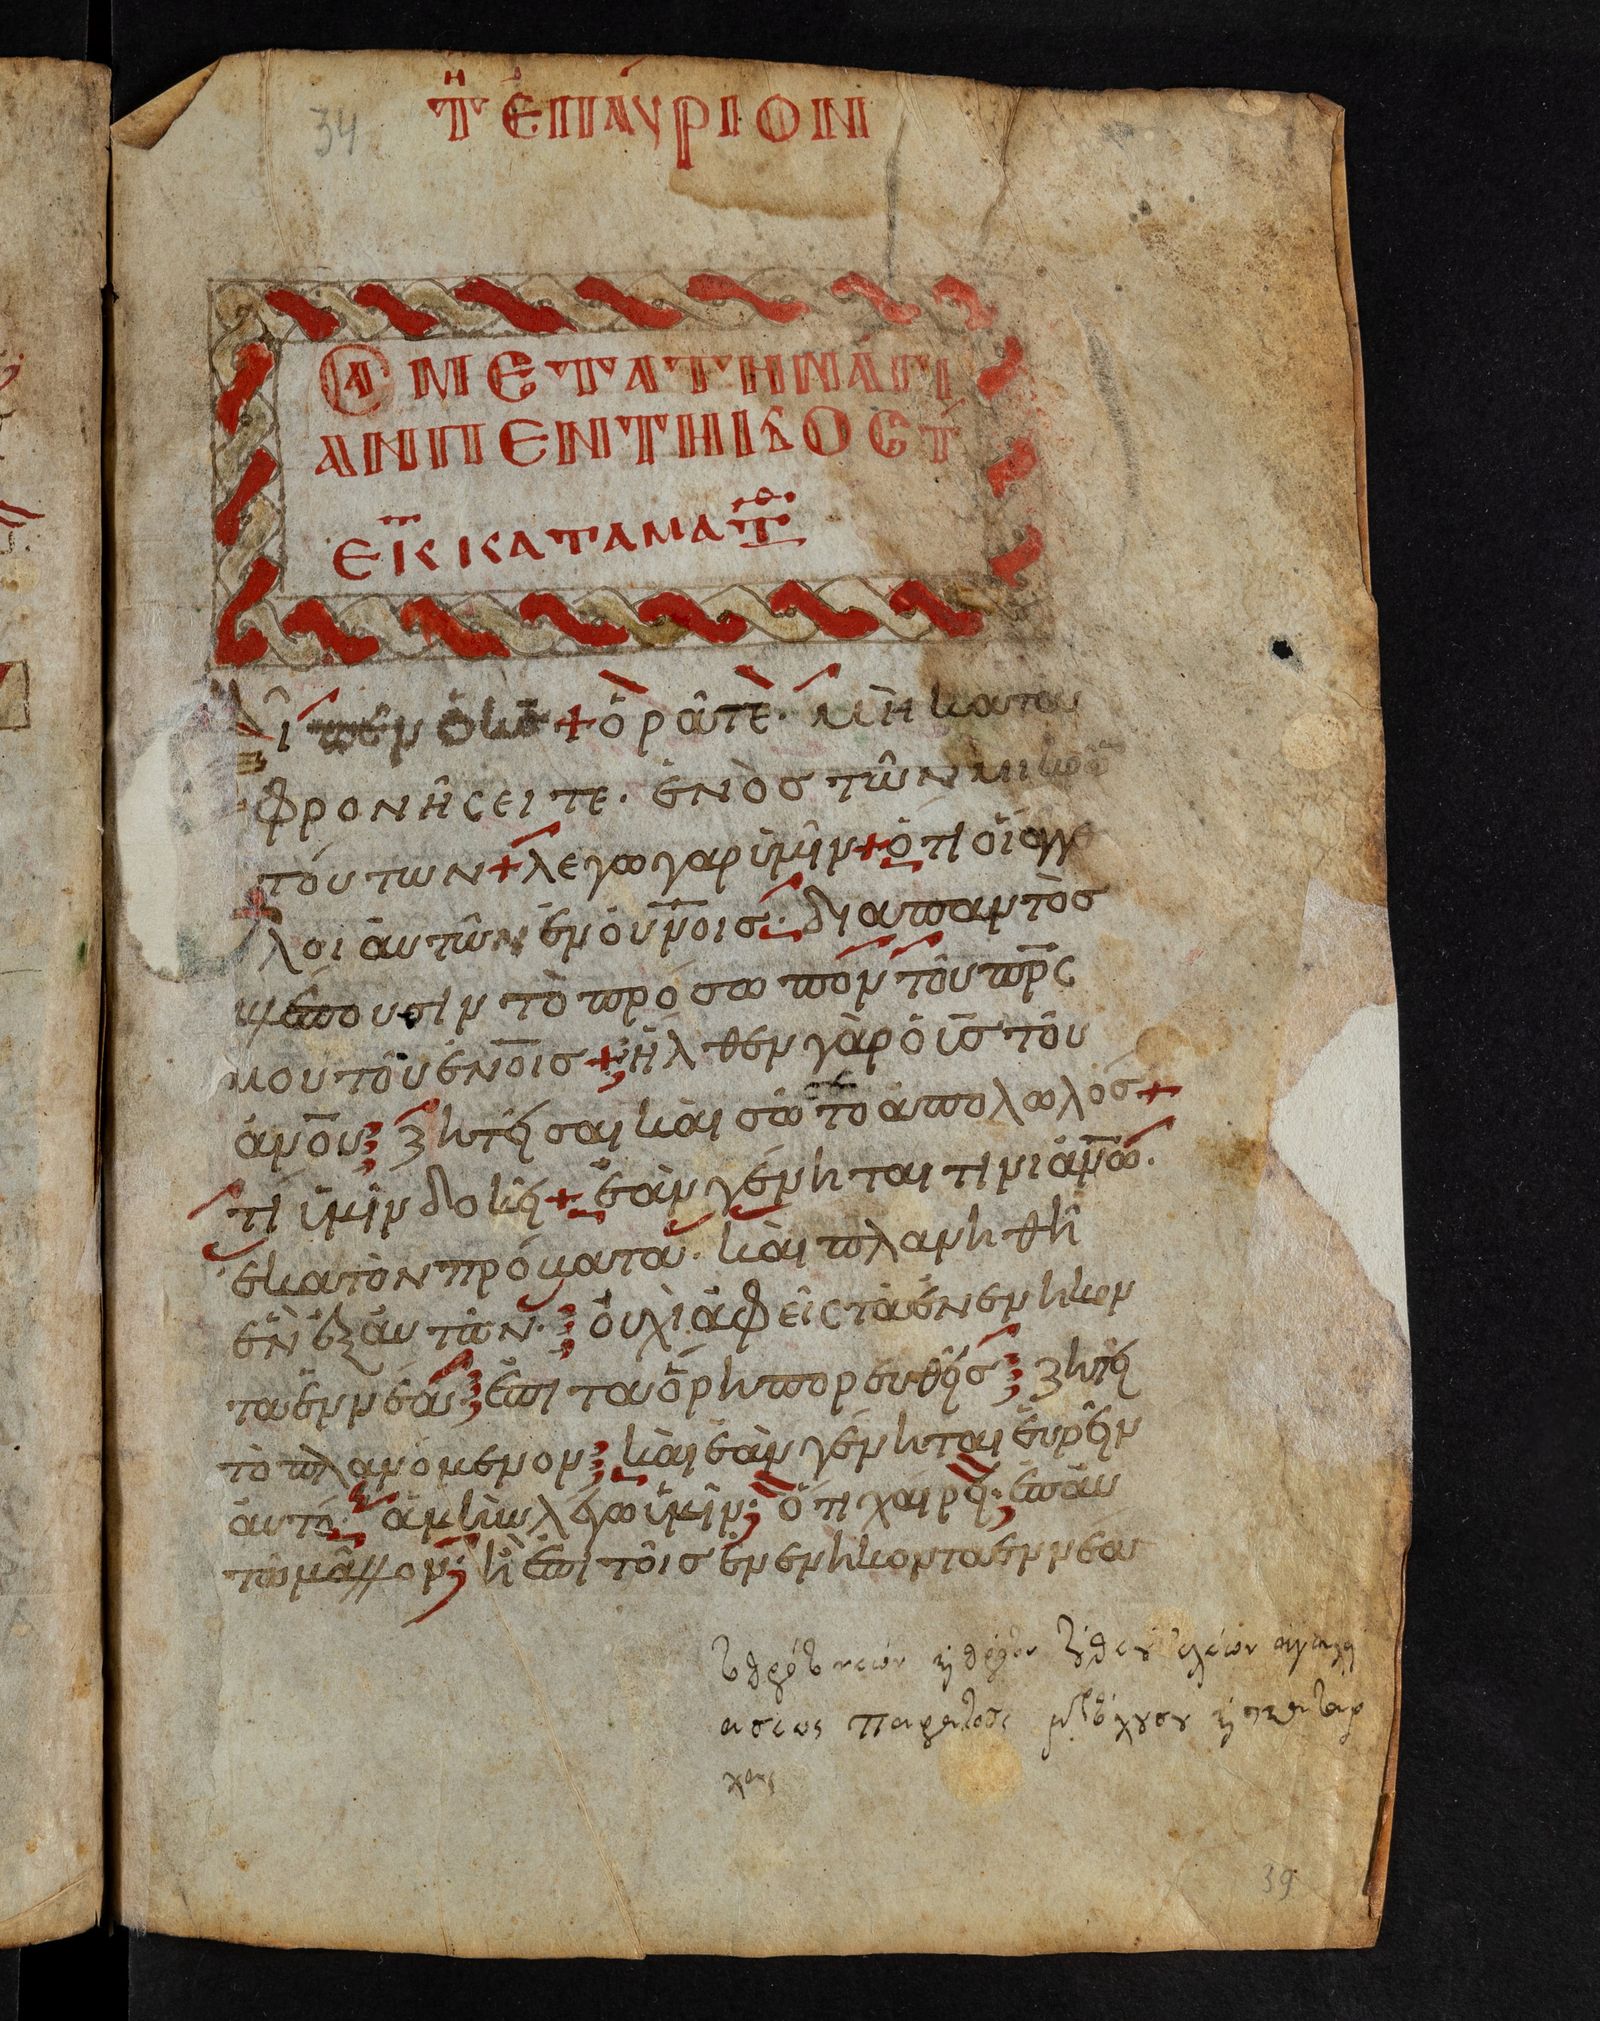 34
τῇ ἐπάυριον
μετα τὴν ἁγί
αν πεντηκοστ
ἐκ κατα ματθ
+ ὁρᾶτὲ· μὴ κατα
φρονῆσειτε· ἑνὸσ τῶν μικρῶ
τούτων + λεγω γαρ ὑμῖν + ὁτι ὁι ἀγγε
λοι ἀυτῶν ἐν ὀυνοισ· διαπαντὸσ
βλέπουσιν τὸ πρόσωπον τοῦ πρς
μου τοῦ ἐν ουνοισ + ἦλθεν γὰρ ὁ υσ τοῦ
ἀνου ζητῆσαι και σῶσαι το ἀπολωλόσ +
τί ὑμῖν δοκεῖ + ἐὰν γένηται τινι ἀνω·
ἑκατὸν πρόβατα· και πλανηθῆ
ἓν ἐξ ἀυτῶν· ὀυχὶ ἀφεὶς τὰ ἐνενηκον
τα ἐννέα ἐπι τα ὄρη πορευθεὶσ ζητεῖ
τὸ πλανόμενον και ἐὰν γένηται ἑυρεῖν
ἀυτό· ἀμὴν λέγω ὑμῖν· ὅτι χαίρει· ἐπ ἀυ
τῶ μᾶλλον· ἢ ἐπι τοῖσ ἐνενηκοντα εννέα
39